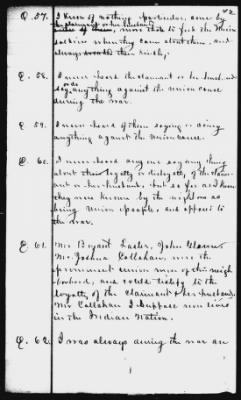 #2
Q. 57. I know of nothing particular, done by
the claimant or her husband
more than to feed the Union
soldiers when they came about them, and
always treated them kindly,
Q. 58. I never heard the claimant or her husband
say anything against the Union cause
during the war.
Q. 59. I never heard of them saying or doing
anything against the Union cause.
Q. 60. I never heard any one say any thing
about their loyalty or disloyalty, of the claim-
ant or her husband, but so far as I know
they were known by the neighbors as
being Union people, and opposed to
the war.
Q. 61. Mr. Bryant Laster, John
Mr. Joshua Callahan, were the
prominent union men of this neigh-
borhood, and could testify to the
loyalty of the claimant & her husband.
Mr. Callahan I suppose now lives
in the Indian Nation.
Q. 62. I was always during the war an